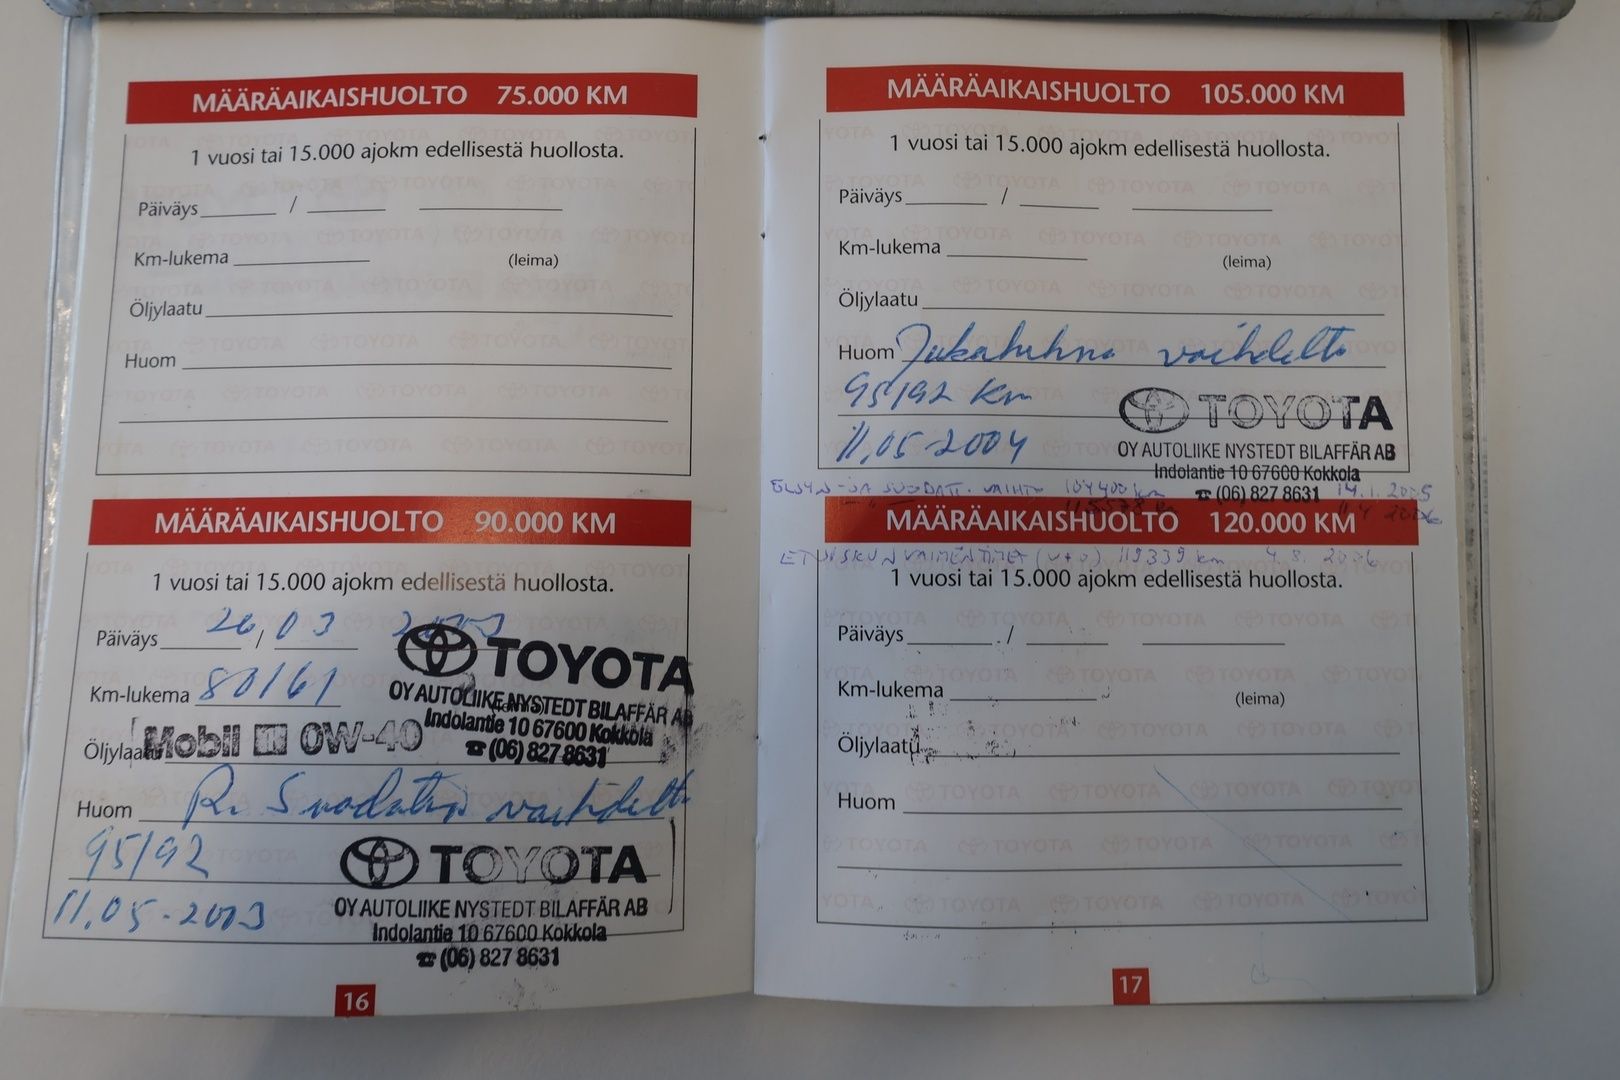 MÄÄRÄAIKAISHUOLTO 75.000 KM
1 vuosi tai 15.000 ajokm edellisestä huollosta.
Päiväys / 
Km-lukema (leima)
Öljylaatu
Huom
MÄÄRÄAIKAISHUOLTO 90.000 KM
1 vuosi tai 15.000 ajokm edellisestä huollosta.
Päiväys 26 / 03 2003
TOYOTA
Km-lukema 80161
OY AUTOLIIKE NYSTEDT BILAFFÄR AB
Indolantie 10 67600 Kokkola
☎ (06) 827 8631
Öljylaatu Mobil 1 0W-40
Huom vaihdettu
95192
11.05-2003
TOYOTA
OY AUTOLIIKE NYSTEDT BILAFFÄR AB
Indolantie 10 67600 Kokkola
☎ (06) 827 8631
16
MÄÄRÄAIKAISHUOLTO 105.000 KM
1 vuosi tai 15.000 ajokm edellisestä huollosta.
Päiväys /
Km-lukema (leima)
Öljylaatu
Huom Jakohihna vaihdettu
95192 Km
11.05-2004
TOYOTA
OY AUTOLIIKE NYSTEDT BILAFFÄR AB
Indolantie 10 67600 Kokkola
☎ (06) 827 8631
ÖLJYN-JA SUODATT. VAIHTO 104400 km 14.1.2005
115578 km 11.4 2006
MÄÄRÄAIKAISHUOLTO 120.000 KM
ETUISKUNVAIMENTIMET (V+O) 119339 km 4.8. 2006
1 vuosi tai 15.000 ajokm edellisestä huollosta.
Päiväys /
Km-lukema (leima)
Öljylaatu
Huom
17